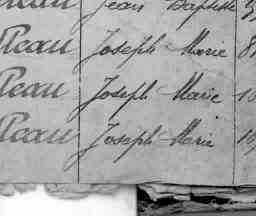 eau Jean Baptiste
leau Joseph Marie 8
leau Joseph Marie 1
leau Joseph Marie 10